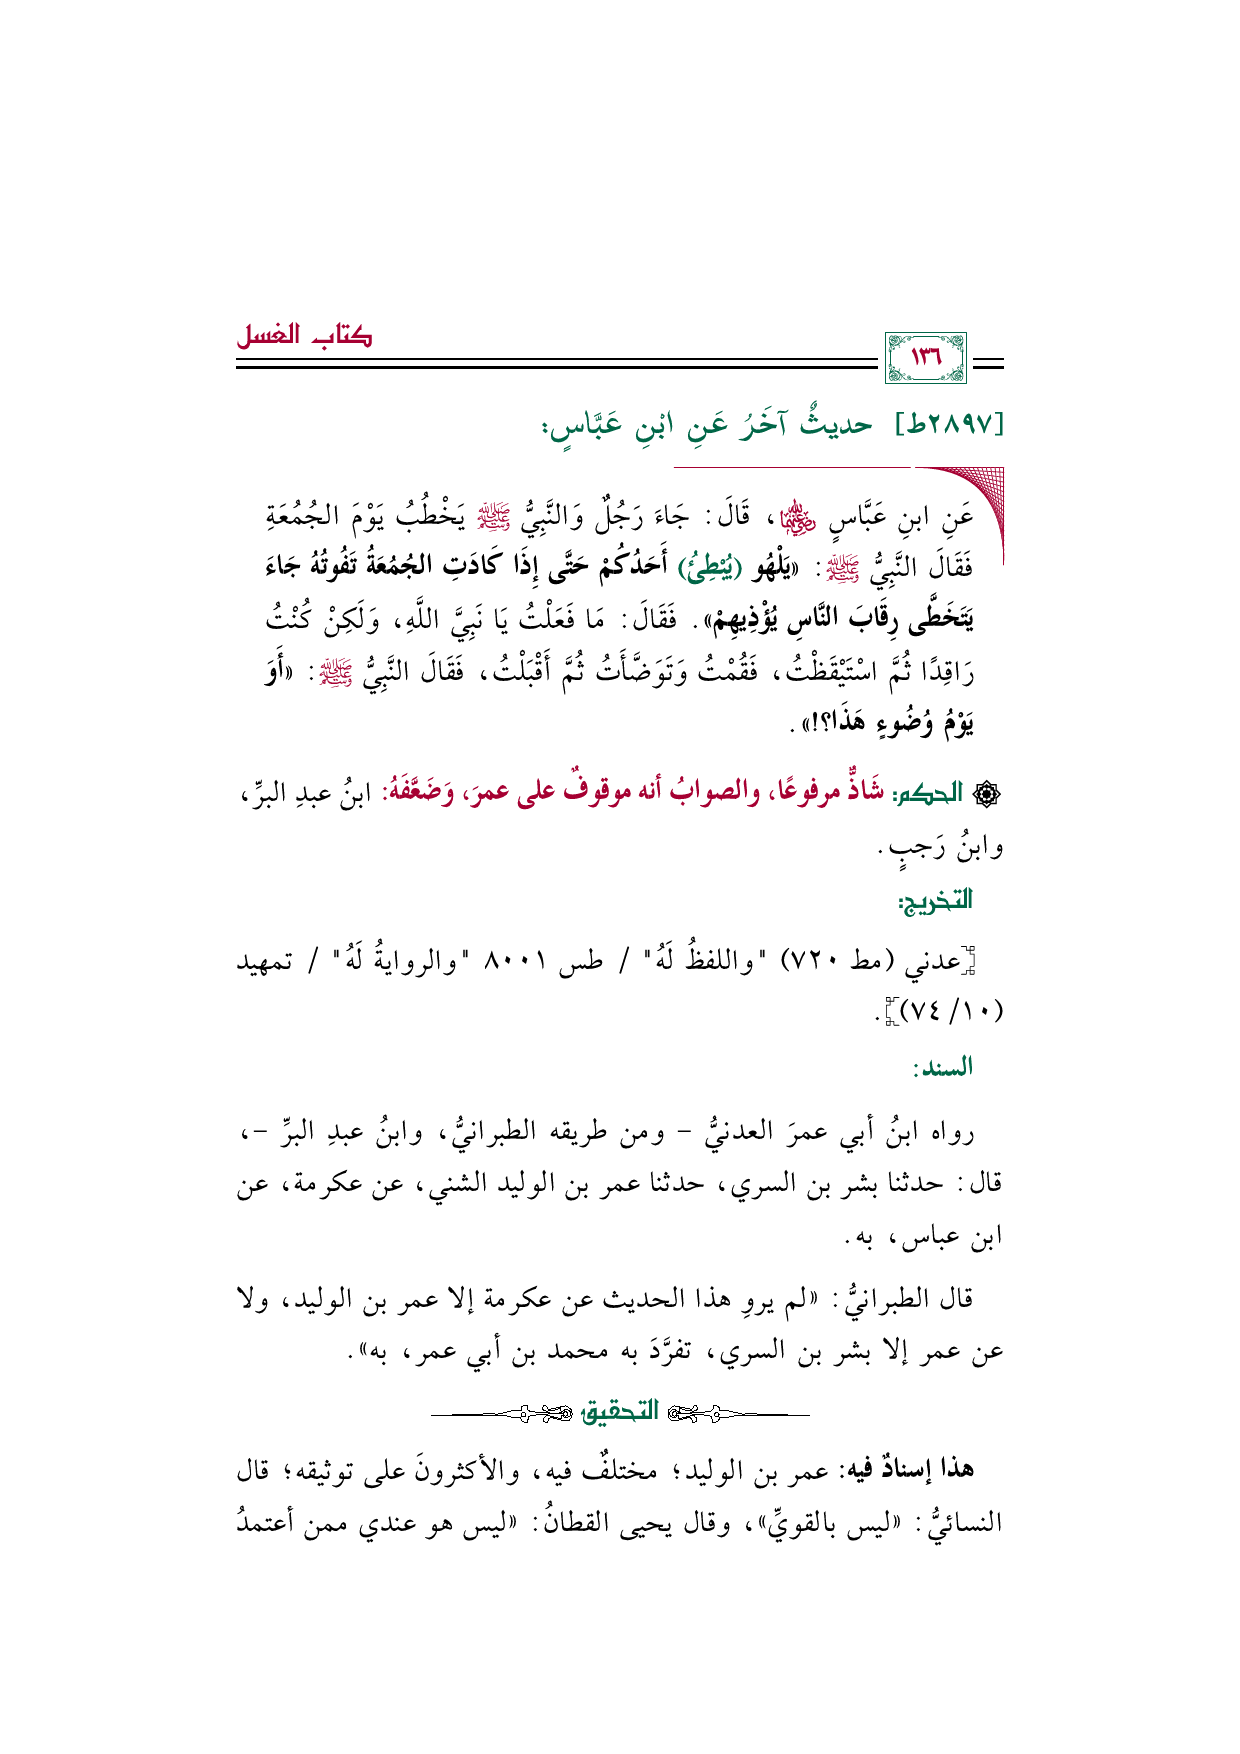 كتاب الغسل
١٣٦
[٢٨٩٧ط] حديثٌ آخَرُ عَنِ ابْنِ عَبَّاسٍ:
عَنِ ابنِ عَبَّاسٍ رضي الله عنهما، قَالَ: جَاءَ رَجُلٌ وَالنَّبِيُّ ﷺ يَخْطُبُ يَوْمَ الجُمُعَةِ
فَقَالَ النَّبِيُّ ﷺ: «يَلْهُو (يُبْطِئُ) أَحَدُكُمْ حَتَّى إِذَا كَادَتِ الجُمُعَةُ تَفُوتُهُ جَاءَ
يَتَخَطَّى رِقَابَ النَّاسِ يُؤْذِيهِمْ». فَقَالَ: مَا فَعَلْتُ يَا نَبِيَّ اللَّهِ، وَلَكِنْ كُنْتُ
رَاقِدًا ثُمَّ اسْتَيْقَظْتُ، فَقُمْتُ وَتَوَضَّأَتُ ثُمَّ أَقْبَلْتُ، فَقَالَ النَّبِيُّ ﷺ: «أَوَ
يَوْمُ وُضُوءٍ هَذَا؟!».
الحكم: شَاذٌّ مرفوعًا، والصوابُ أنه موقوفٌ على عمرَ، وَضَعَّفَهُ: ابنُ عبدِ البرِّ،
وابنُ رَجبٍ.
التخريج:
[عدني (مط ٧٢٠) "واللفظُ لَهُ" / طس ٨٠٠١ "والروايةُ لَهُ" / تمهيد
(١٠/ ٧٤)].
السند:
رواه ابنُ أبي عمرَ العدنيُّ - ومن طريقه الطبرانيُّ، وابنُ عبدِ البرِّ -،
قال: حدثنا بشر بن السري، حدثنا عمر بن الوليد الشني، عن عكرمة، عن
ابن عباس، به.
قال الطبرانيُّ: «لم يروِ هذا الحديث عن عكرمة إلا عمر بن الوليد، ولا
عن عمر إلا بشر بن السري، تفرَّدَ به محمد بن أبي عمر، به».
التحقيق
هذا إسنادٌ فيه: عمر بن الوليد؛ مختلفٌ فيه، والأكثرونَ على توثيقه؛ قال
النسائيُّ: «ليس بالقويِّ»، وقال يحيى القطانُ: «ليس هو عندي ممن أعتمدُ